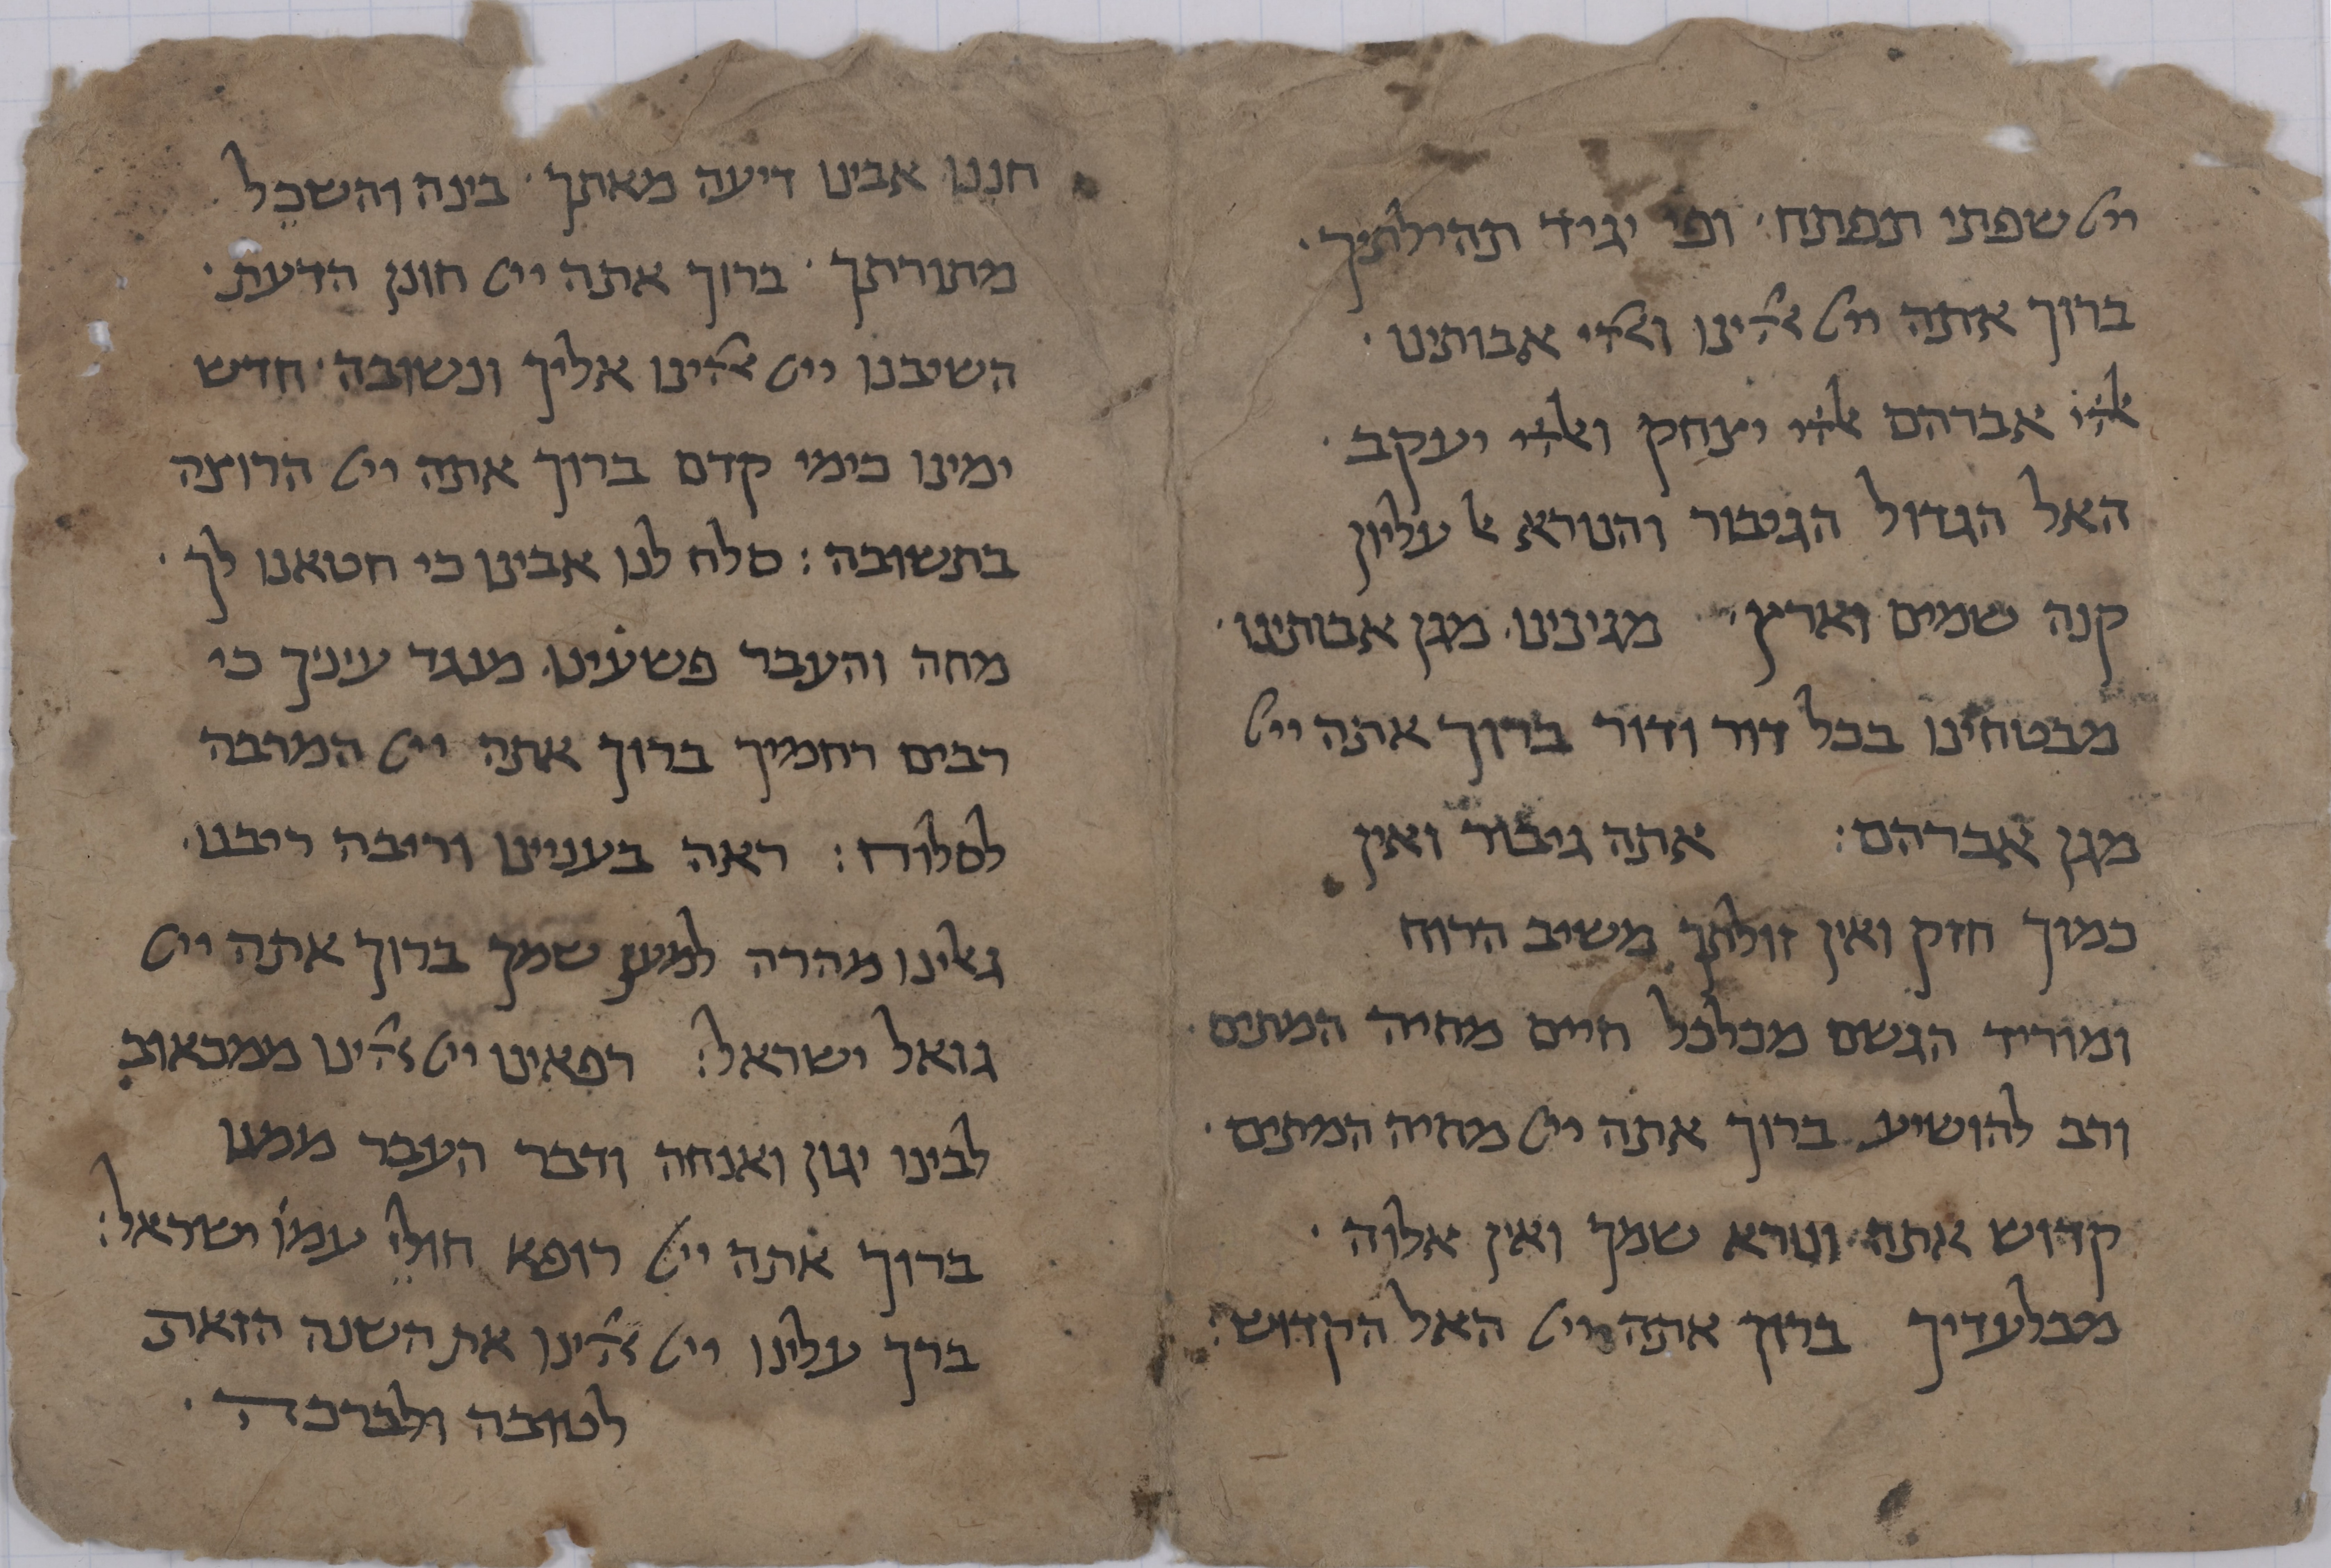 ייי שפתי תפתח · ופי יגיד תהילתיך ·
ברוך אתה ייי אלהינו ואלהי אבותינו ·
אלהי אברהם אלהי יצחק ואלהי יעקב ·
האל הגדול הגיבור והנורא אל עליון
קנה שמים וארץ · מגינינו מגן אבותינו ·
מבטחינו בכל דור ודור ברוך אתה ייי
מגן אברהם : אתה גיבור ואין
כמוך חזק ואין זולתך משיב הרוח
ומוריד הגשם מכלכל חיים מחיה המתים ·
ורב להושיע ברוך אתה ייי מחיה המתים ·
קדוש אתה ונורא שמך ואין אלוה ·
מבלעדיך ברוך אתה ייי האל הקדוש :
חננו אבינו דיעה מאתך · בינה והשכל
מתורתך · ברוך אתה ייי חונן הדעת ·
השיבנו ייי אלהינו אליך ונשובה · חדש
ימינו כימי קדם ברוך אתה ייי הרוצה
בתשובה : סלח לנו אבינו כי חטאנו לך ·
מחה והעבר פשעינו מנגד עיניך כי
רבים רחמיך ברוך אתה ייי המרבה
לסלוח : ראה בעניינו וריבה ריבנו ·
גאלינו מהרה למען שמך ברוך אתה ייי
גואל ישראל : רפאינו ייי אלהינו ממכאוב
לבינו יגון ואנחה ודבר העבר ממנו
ברוך אתה ייי רופא חולי עמו ישראל :
ברך עלינו ייי אלהינו את השנה הזאת
לטובה ולברכה ·